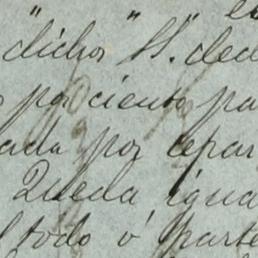 "dichos" "SS." ded
por ciento pa
ada por cepar
Queda igua
todo ó parte